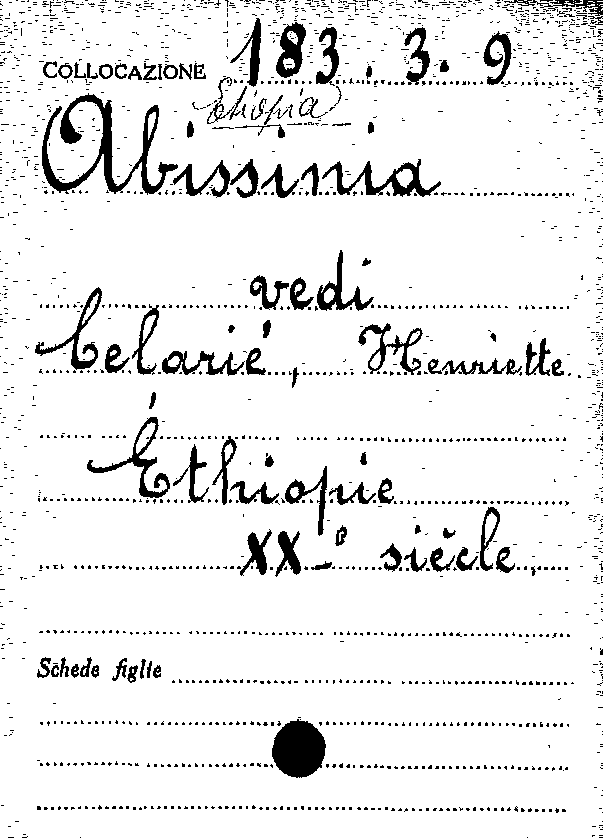 COLLOCAZIONE 183.3.9
Etiopia
Abissinia
vedi
Celarié, Henriette
Éthiopie
XX-e siècle.
Schede figlie